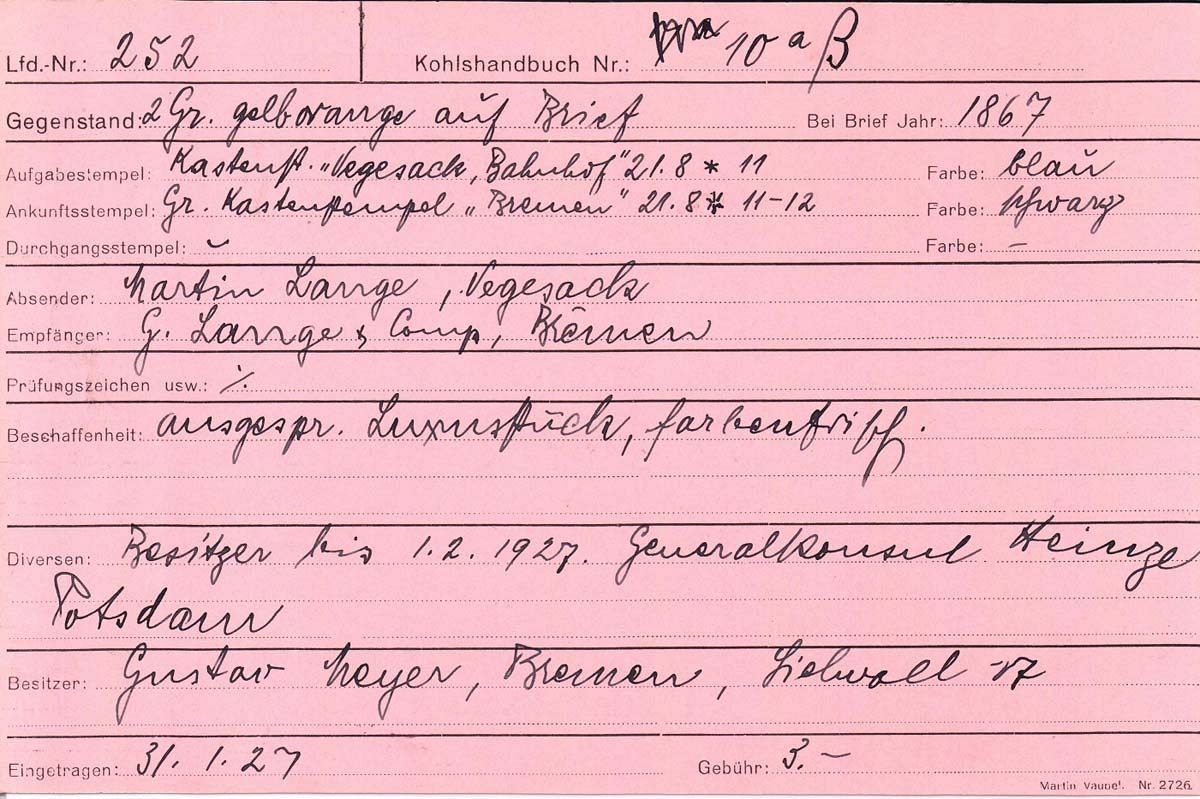 Lfd.-Nr.: 252 Kohlshandbuch Nr.: 10 a B
Gegenstand: 2 Gr. gelborange auf Brief Bei Brief Jahr: 1867
Aufgabestempel: Kastenst. „Vegesack, Bahnhof" 21.8 * 11 Farbe: blau
Ankunftsstempel: Gr. Kastenstempel „Bremen" 21.8 * 11-12 Farbe: schwarz
Durchgangsstempel: Farbe: –
Absender: Martin Lange, Vegesack
Empfänger: G. Lange & Comp, Bremen
Prüfungszeichen usw.: ·/.
Beschaffenheit: ausgespr. Luxusstück, farbenfrisch.
Diversen: Besitzer bis 1.2.1927. Generalkonsul Heinze
Potsdam
Besitzer: Gustav Meyer, Bremen, Sielwall
Eingetragen: 31.1.27 Gebühr: 3.–
Martin Vaupel. Nr. 2726.